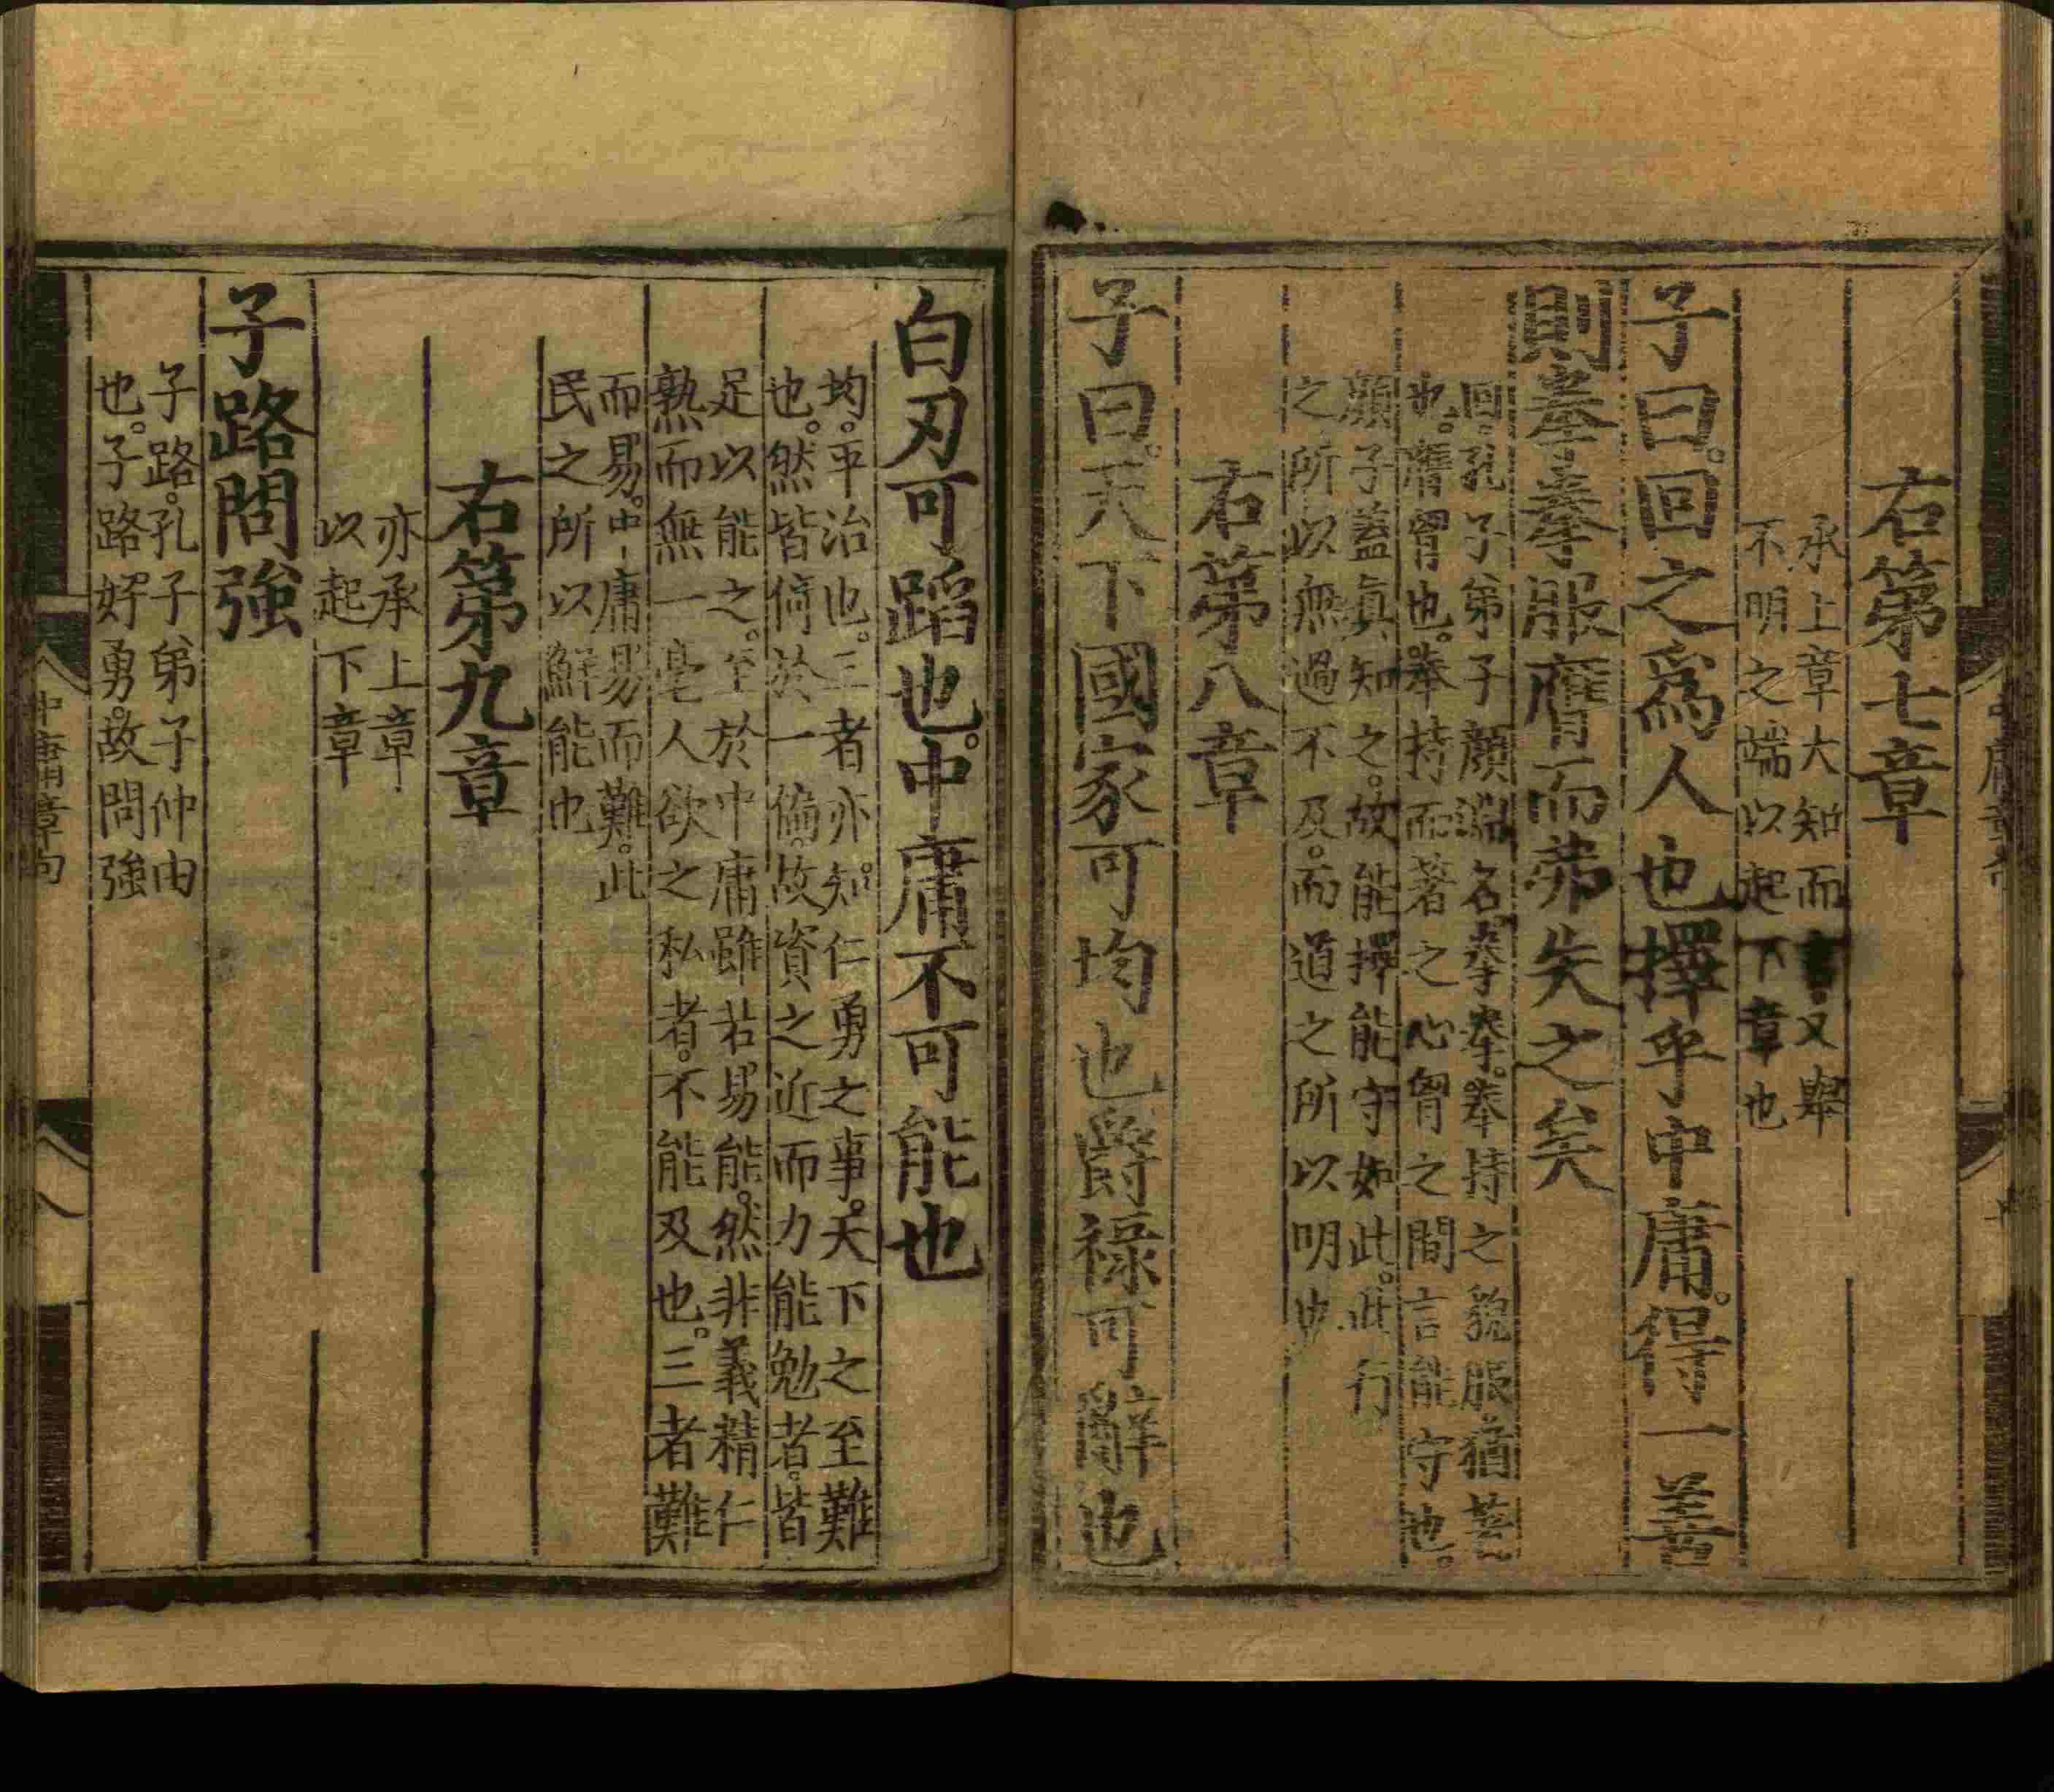 右第七章
承上章大知而言又舉
不明之端以起下章也
子曰。回之爲人也擇乎中庸。得一善
則拳拳服膺而弗失之矣
回。孔子弟子顔淵名。拳拳。奉持之貌服猶著
也。膺胷也。奉持而著之心胷之間言能守也。
顔子蓋眞知之。故能擇能守如此。此行
之所以無過不及。而道之所以明也
右第八章
子曰。天下國家可均也爵祿可辭也
白刃可蹈也。中庸不可能也
均。平治也。三者亦知。仁勇之事。天下之至難
也。然皆倚於一偏。故資之近而力能勉者。皆
足以能之。至於中庸雖若易能。然非義精仁
熟而無一毫人欲之私者。不能及也。三者難
而易。中庸易而難。此
民之所以鮮能也
右第九章
亦承上章
以起下章
子路問強
子路。孔子弟子仲由
也。子路好勇。故問強
中庸章句
八